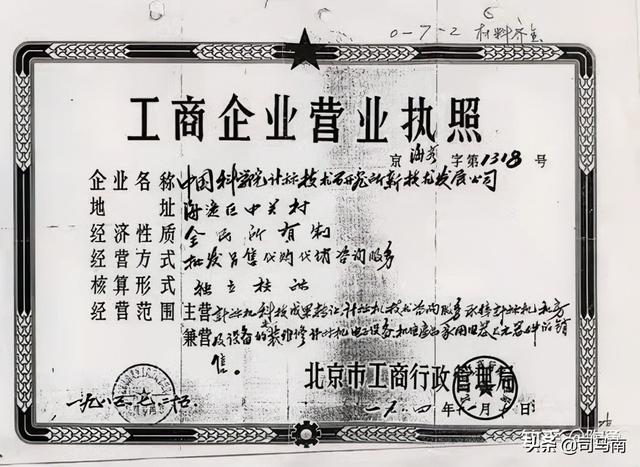 0-7-2 材料齐全
工商企业营业执照
京 海字 字第1318号
企业名称 中国科学院计标技术研究所新技术发展公司
地址 海淀区中关村
经济性质 全民所有制
经营方式 批发另售代购代销咨询服务
核算形式 独立核祘
经营范围 主营 计祘机科技成果转让计祘机技术咨询服务承接计祘机
兼营 及设备的装维修计祘机电子设备 家用电器 元器件的销
售。
北京市工商行政管理局
一九八五七二五
一九 四年十一月 日
头条@司马南